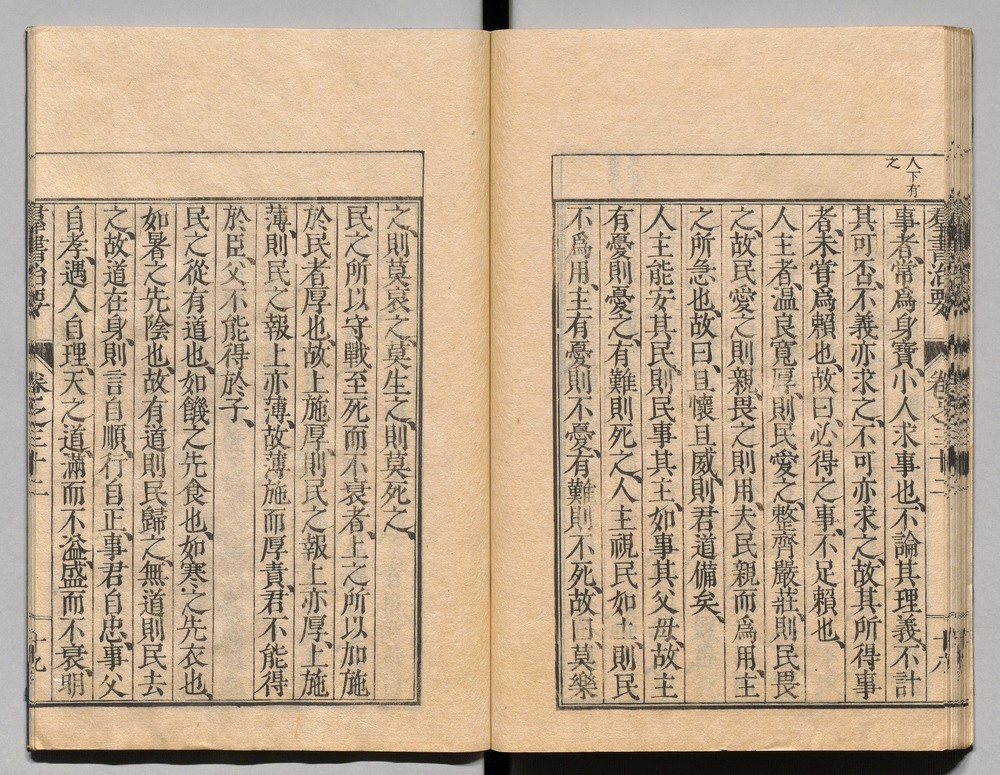 人下有
之
羣書治要 卷之三十二 十八
事者、常爲身寶、小人求事也、不論其理義、不計
其可否、不義亦求之、不可亦求之、故其所得事
者、未嘗爲賴也、故曰、必得之事、不足賴也、
人主者、溫良寬厚、則民愛之、整齊嚴莊、則民畏
之、故民愛之則親、畏之則用、夫民親而爲用、主
之所急也、故曰、且懷且威、則君道備矣、
人主能安其民、則民事其主、如事其父母、故主
有憂則憂之、有難則死之、人主視民如土、則民
不爲用、主有憂則不憂、有難則不死、故曰、莫樂
之、則莫哀之、莫生之、則莫死之、
民之所以守戰至死而不衰者、上之所以加施
於民者厚也、故上施厚、則民之報上亦厚、上施
薄、則民之報上亦薄、故薄施而厚責、君不能得
於臣、父不能得於子、
民之從有道也、如饑之先食也、如寒之先衣也、
如暑之先陰也、故有道則民歸之、無道則民去
之、故道在身、則言自順、行自正、事君自忠、事父
自孝、遇人自理、天之道、滿而不溢、盛而不衰、明
羣書治要 卷之三十二 十九